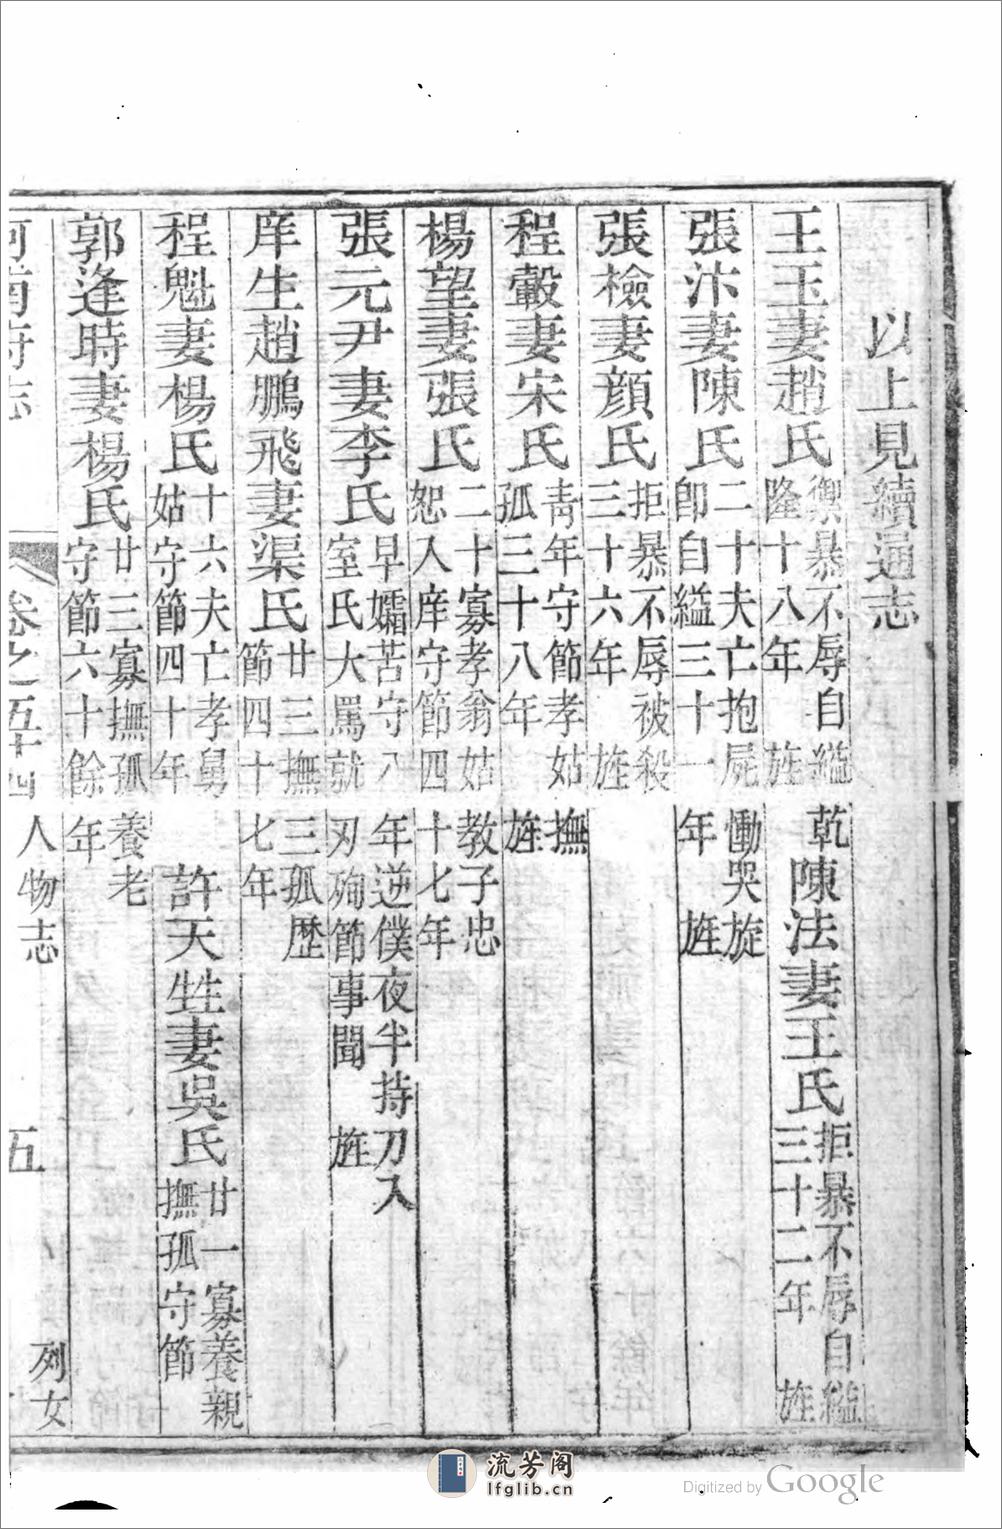 以上見續通志
王玉妻趙氏禦暴不辱自縊乾
隆十八年 旌
陳法妻王氏拒暴不辱自縊
三十二年 旌
張汴妻陳氏二十夫亡抱屍慟哭旋
即自縊三十一年 旌
張檢妻顔氏拒暴不辱被殺
三十六年 旌
程轂妻宋氏青年守節孝姑撫
孤三十八年 旌
楊望妻張氏二十寡孝翁姑教子忠
恕入庠守節四十七年
張元尹妻李氏早孀苦守八年逆僕夜半持刀入
室氏大罵就刃殉節事聞 旌
庠生趙鵬飛妻渠氏廿三撫三孤歷
節四十七年
程魁妻楊氏十六夫亡孝舅
姑守節四十年
許天甡妻吳氏廿一寡養親
撫孤守節
郭逢時妻楊氏廿三寡撫孤養老
守節六十餘年
河南府志 卷之五十四 人物志 五 列女
流芳阁
lfglib.cn
Digitized by Google